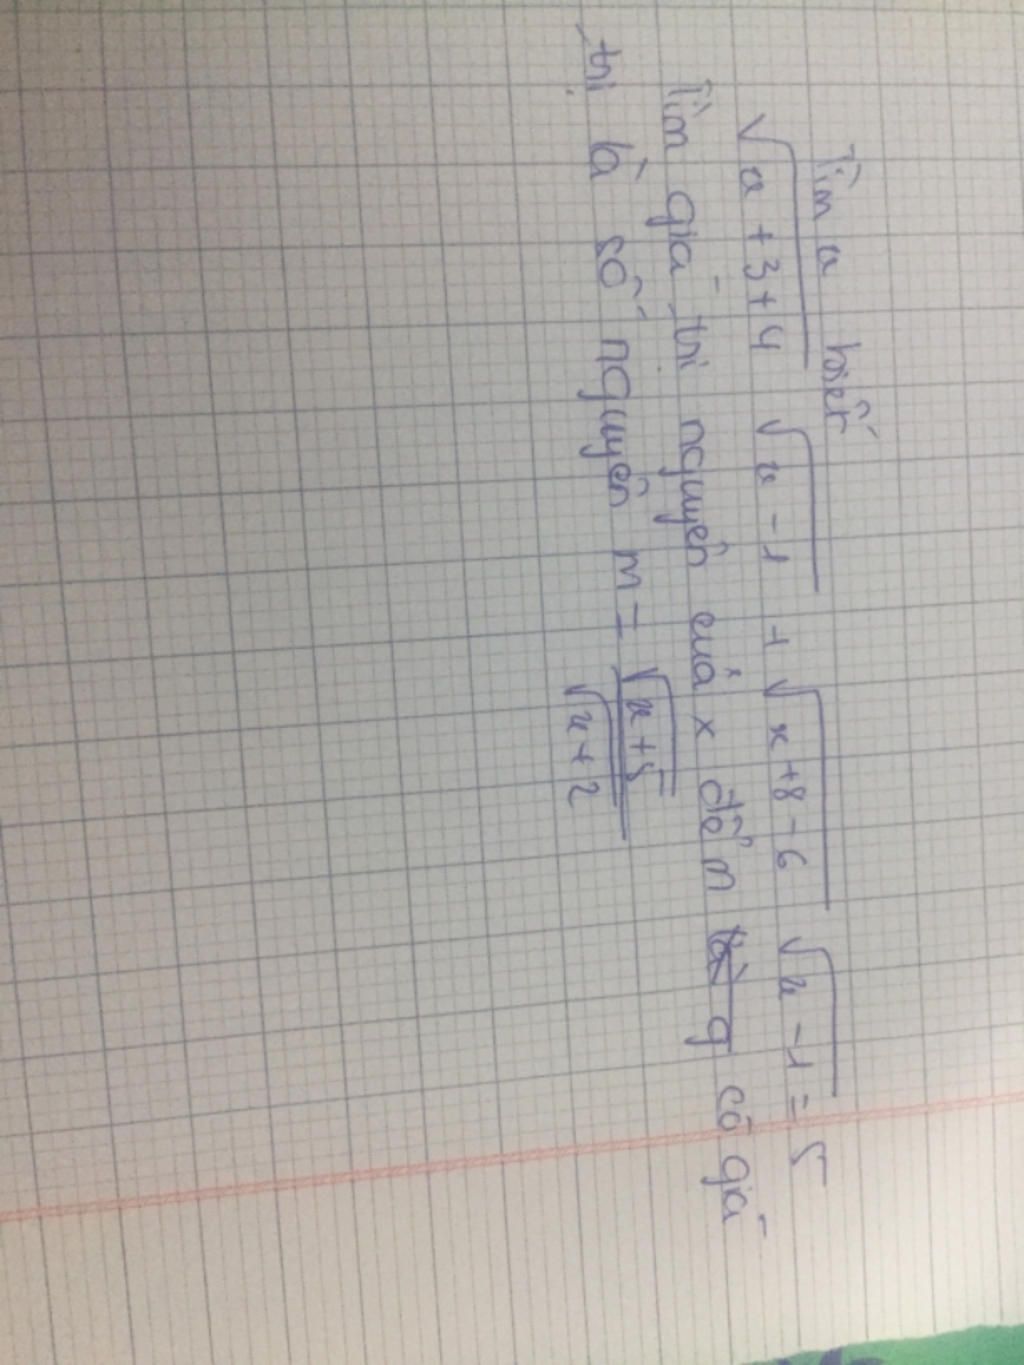 Tìm x biết
√x+3+4 √x-1 + √x+8-6 √x-1 = 5
Tìm giá trị nguyên của x để m có giá
trị là số nguyên m = √x+5 / √x+2